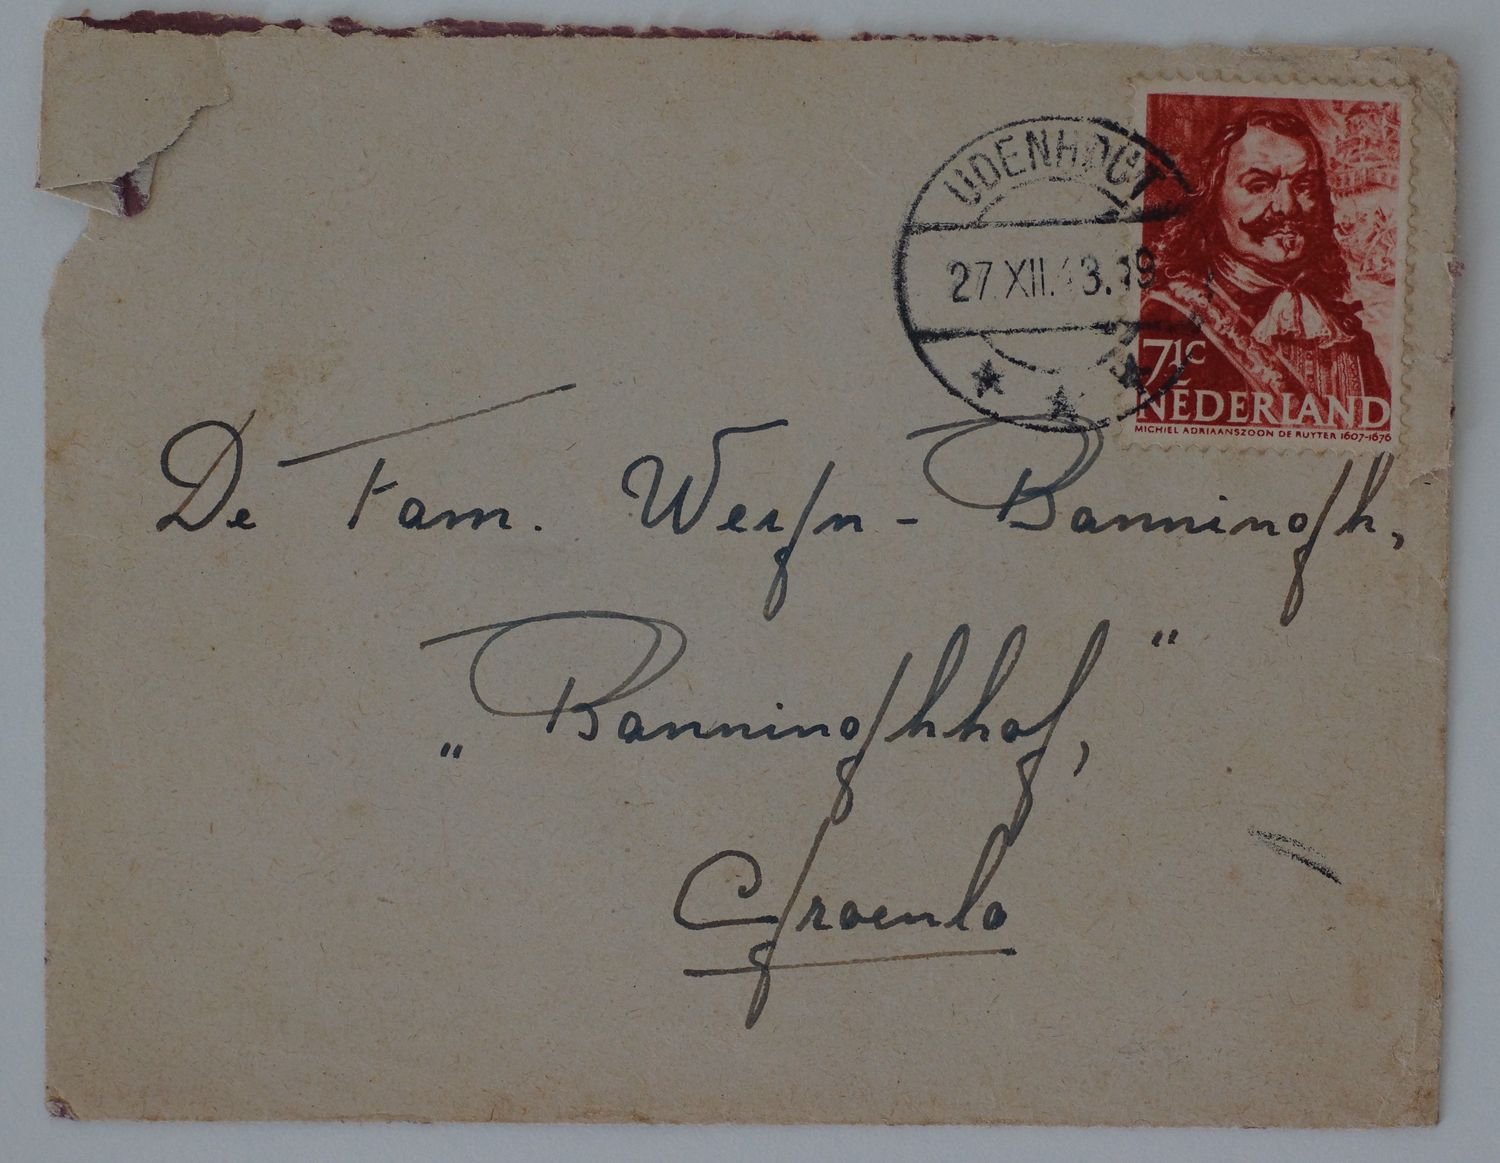 UDENHOUT
27 XII. 43.19
7½C
NEDERLAND
MICHIEL ADRIAANSZOON DE RUYTER 1607-1676
De Fam. Weijn - Banningh,
„ Banninghhof, "
Groenlo